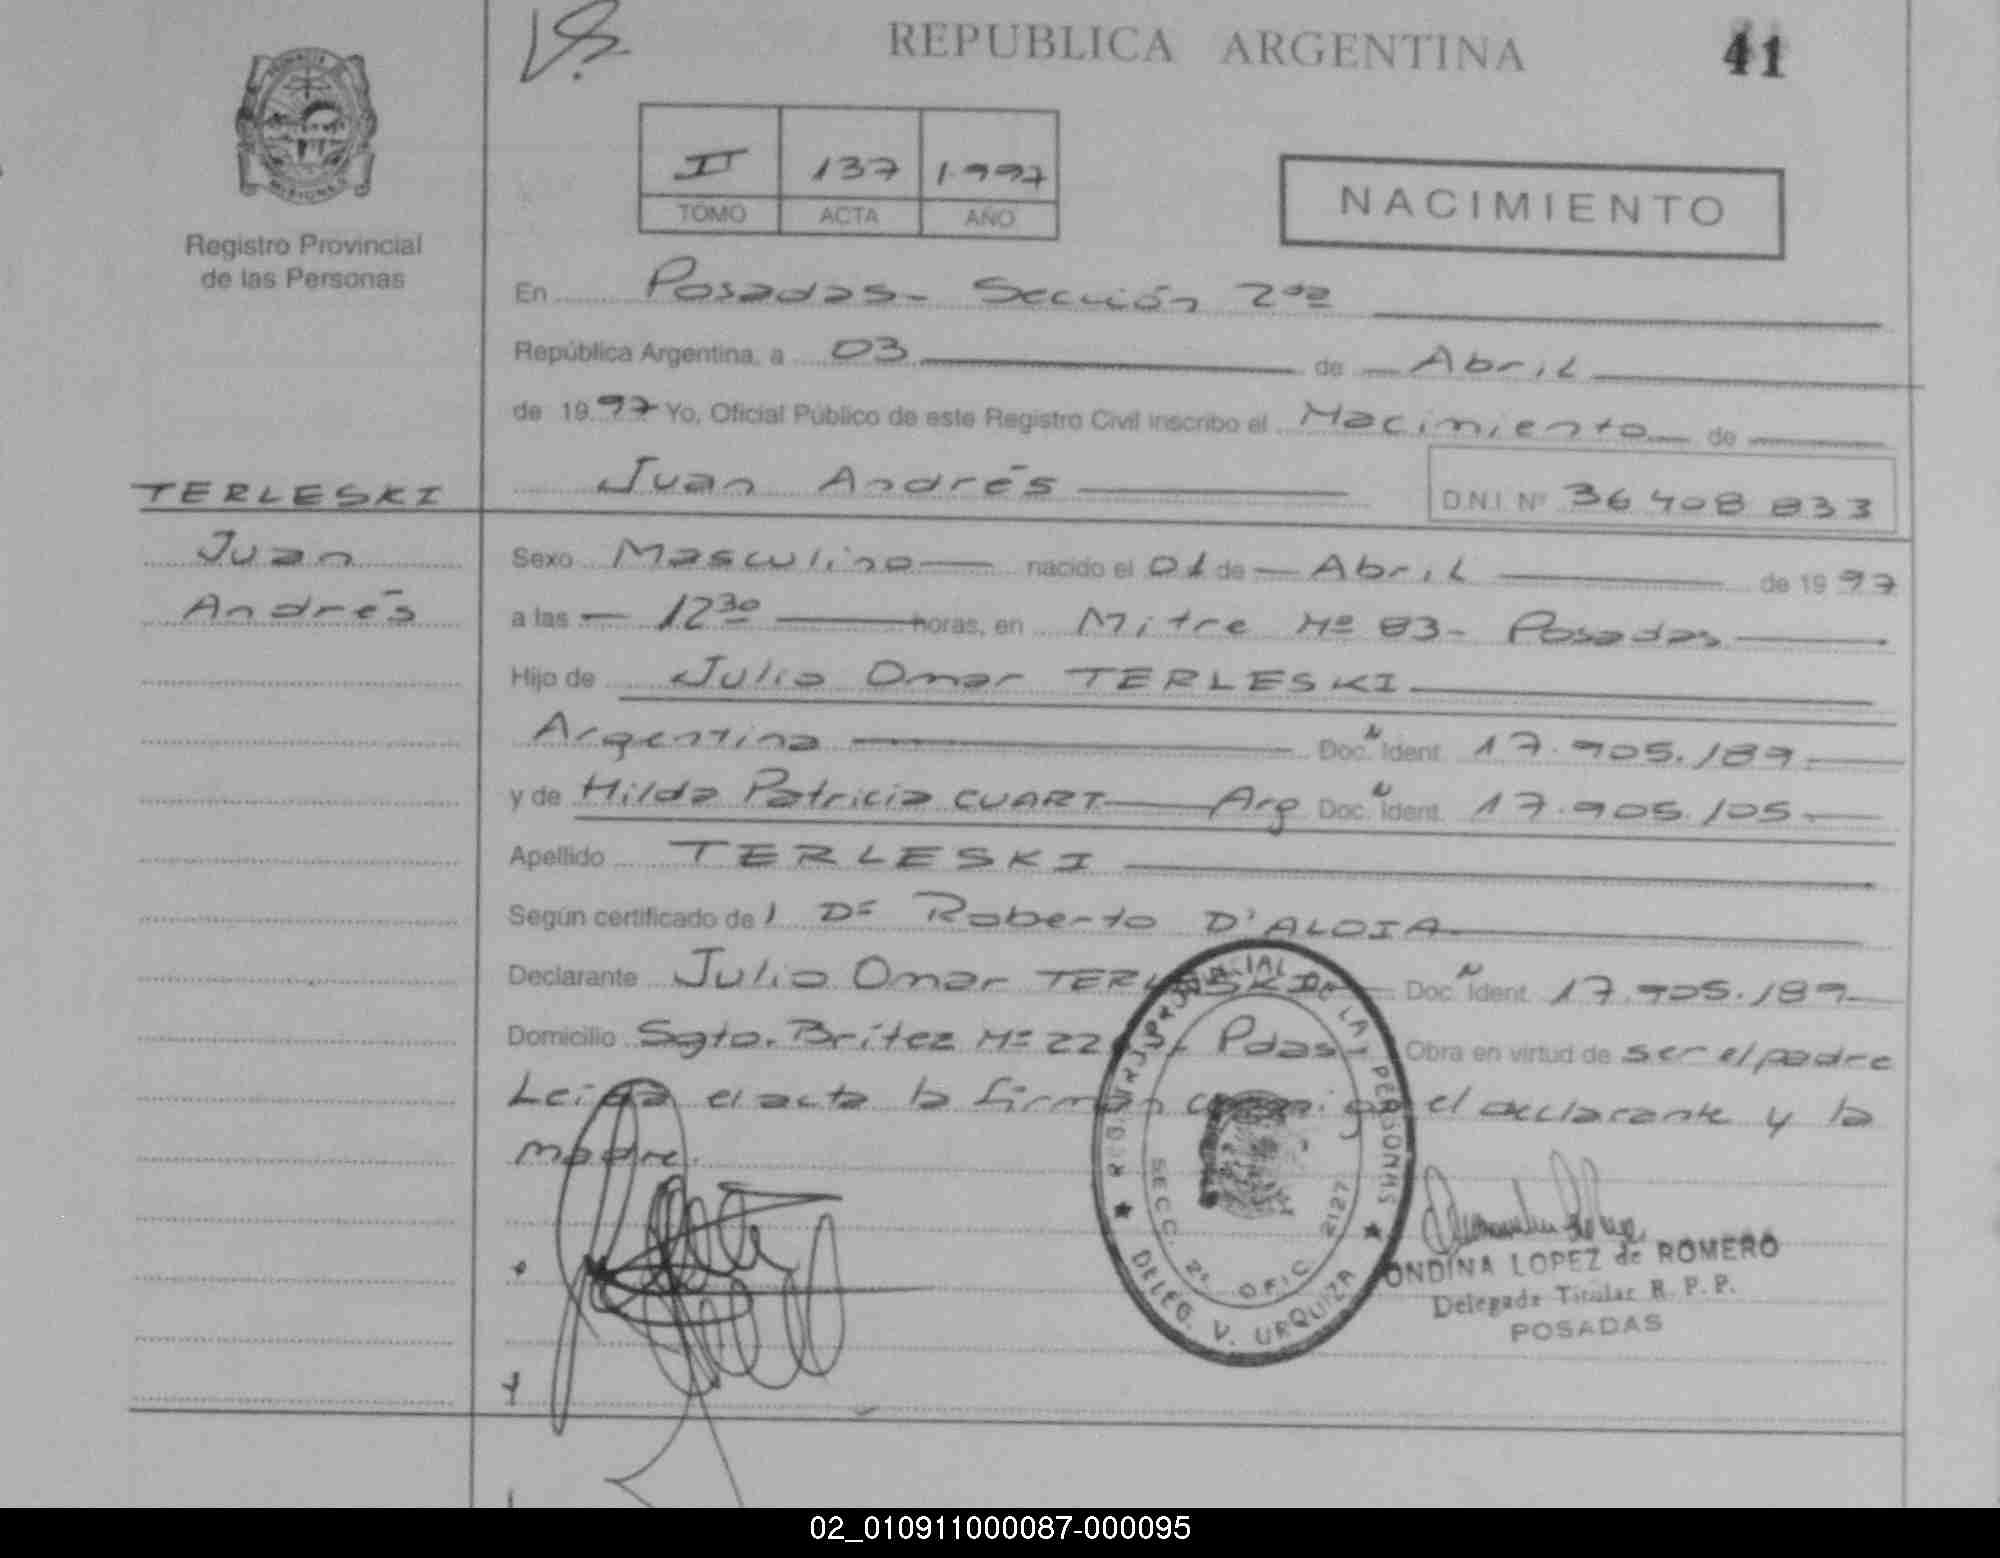 REPUBLICA ARGENTINA
41
II 137 1.997
TOMO ACTA AÑO
NACIMIENTO
Registro Provincial
de las Personas
En Posadas - Sección 2da
República Argentina, a 03 de Abril
de 1997 Yo, Oficial Público de este Registro Civil inscribo el Nacimiento de
Juan Andrés
D.N.I. Nº 36 408 833
TERLESKI
Juan
Andrés
Sexo Masculino nacido el 01 de Abril de 1997
a las 12 30 horas, en Mitre Nº 83 - Posadas
Hijo de Julio Omar TERLESKI
Argentina Doc. Ident. 17.905.189.
y de Hilda Patricia CUART Arg Doc. Ident. 17.905.105.
Apellido TERLESKI
Según certificado de l Dr Roberto D'ALOIA
Declarante Julio Omar TERLESKI Doc. Ident. 17.905.189
Domicilio Sgto. Brítez Nº Pdas - Obra en virtud de ser el padre
Leida el acta la firman conmigo el declarante y la
madre.
DE LAS PERSONAS
SECC. 2ª OFIC. 2127
DELEG. V. URQUIZA
ONDINA LOPEZ de ROMERO
Delegada Titular R. P. P.
POSADAS
02_010911000087-000095